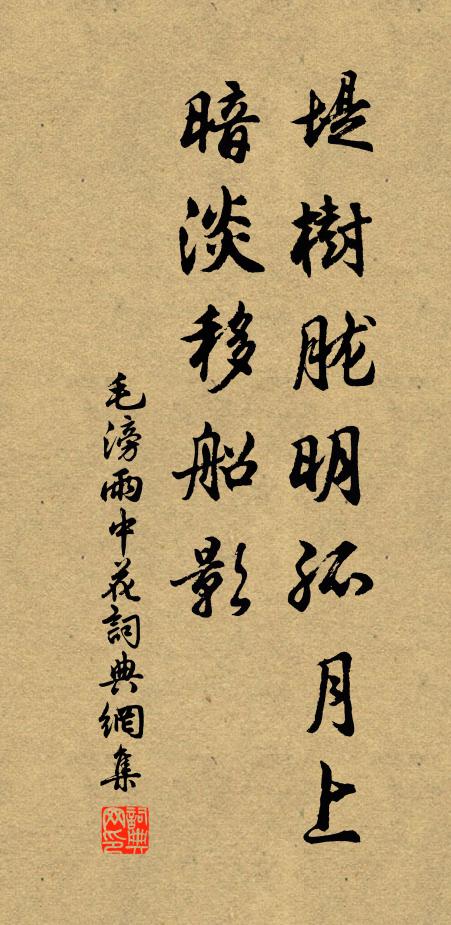 堤樹胧明孤月上
暗淡移船影
毛滂雨中花詞典網集
詞典网印